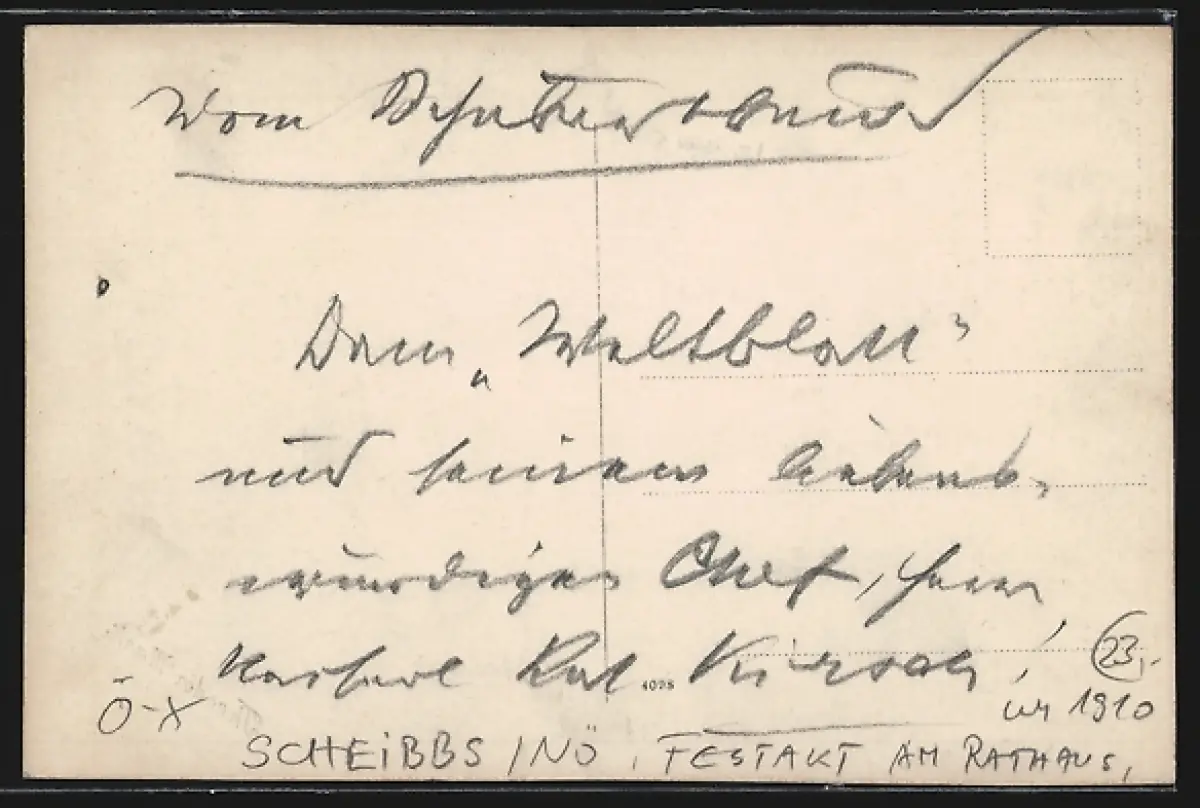 Vom Schubertbund
Dem „Weltblatt“
und seinem liebens-
würdigen Chef, Herrn
Kaiserl Rat Kirsch!
23,-
Ö-X
um 1910
SCHEIBBS / NÖ, FESTAKT AM RATHAUS,